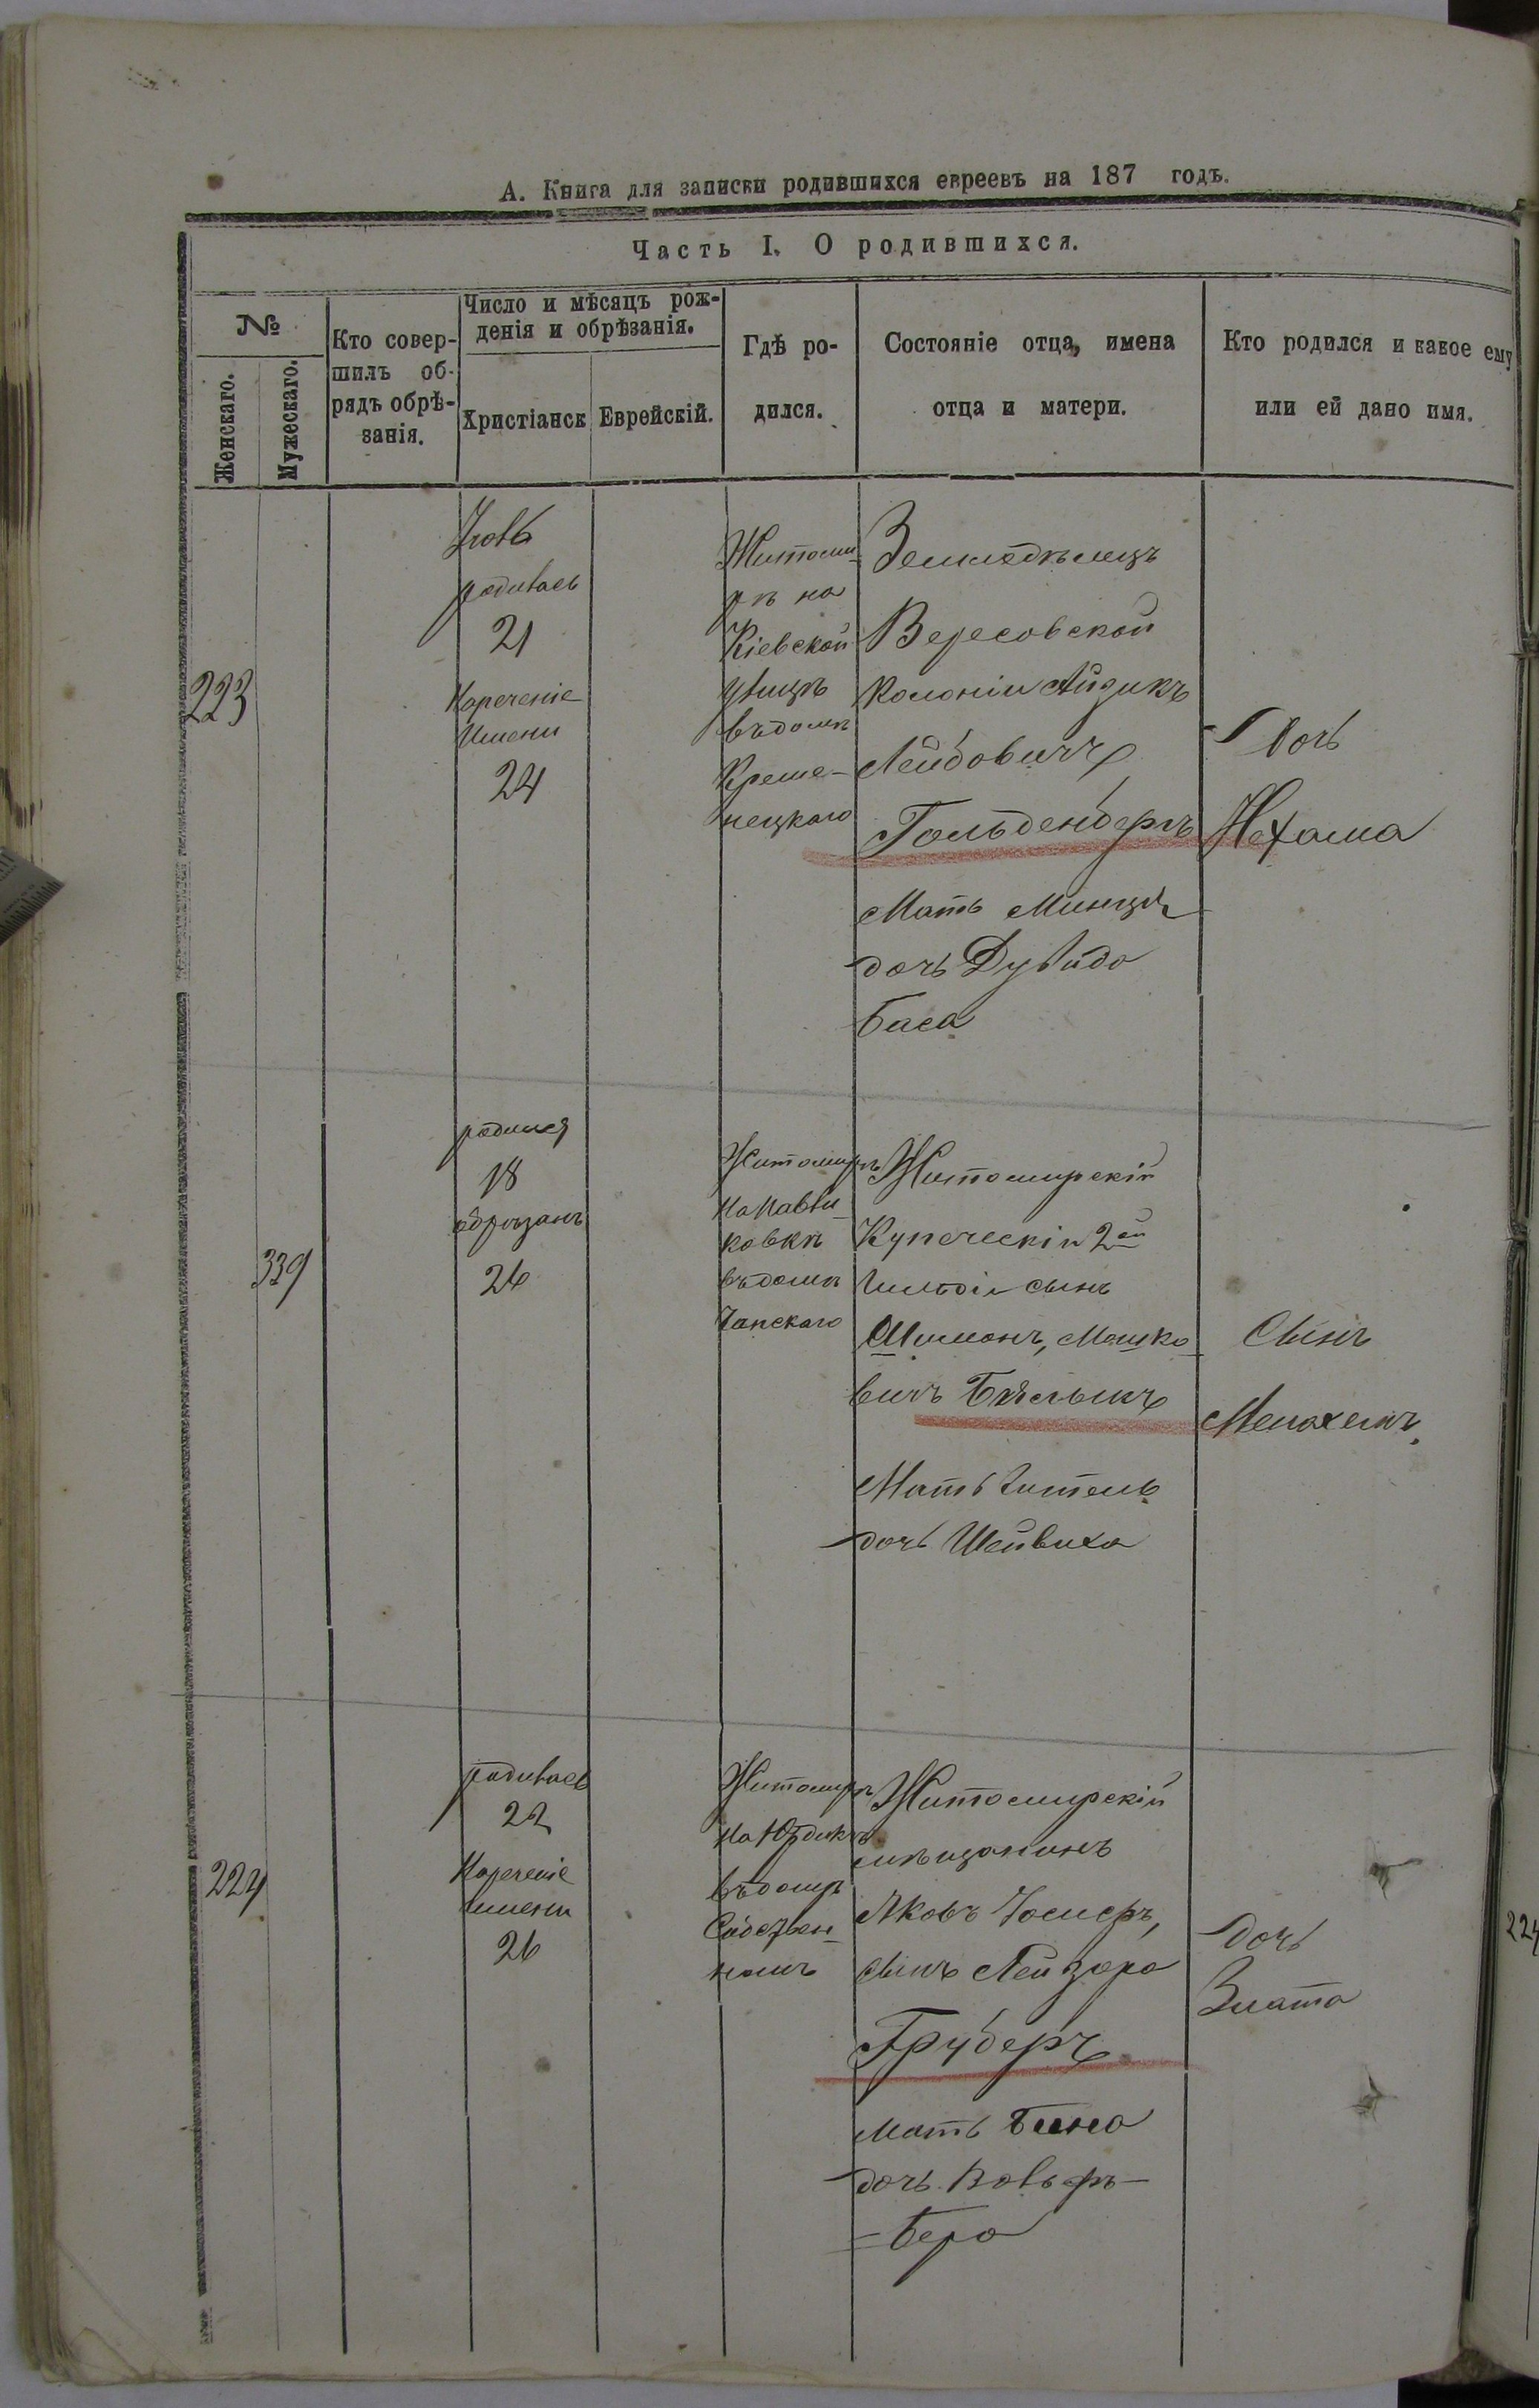 А. Книга для записки родившихся евреевъ на 187 годъ.
Часть I. О родившихся.
№
Женскаго.
Мужескаго.
Кто совер-
шилъ об-
рядъ обрѣ-
занія.
Число и мѣсяцъ рож-
денія и обрѣзанія.
Христіанск
Еврейскій.
Гдѣ ро-
дился.
Состояніе отца, имена
отца и матери.
Кто родился и какое ему
или ей дано имя.
223
родилась
21
Наречение
имени
24
Житоми-
рѣ на
Кіевской
улицѣ
въ домѣ
Креме-
нецкаго
Земледѣлецъ
Вересовской
Колоніи Айзикъ
Лейбовичъ
Гольденбергъ
Мать
дочь Дувида
Баса
Дочь
Нехама
339
родился
18
обрѣзанъ
26
Житомирѣ
на Павли-
ковкѣ
въ домѣ
Чапскаго
Житомирскій
Купеческій 2ой
Гильдіи сынъ
Шимонъ, Мошко-
вичъ
Мать Гитель
дочь
Сынъ
Менахемъ
224
родилась
22
Наречение
имени
26
Житомирѣ
на
въ домѣ
Собствен-
номъ
Житомирскій
мѣщанинъ
Яковъ Іосифъ,
сынъ Лейзора
Груберъ
Мать Бина
дочь Вольфъ-
=Бера
Дочь
Злата
224